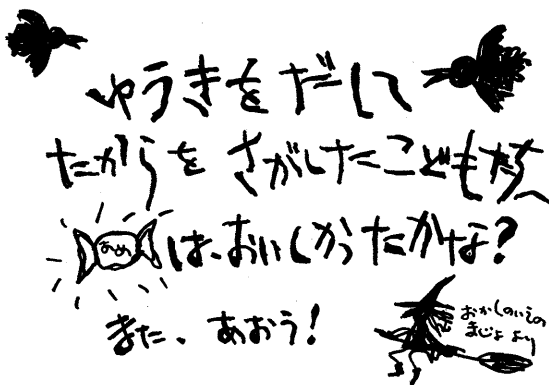 ゆうきをだして
たからを さがしたこどもたちへ
あめ は、おいしかったかな?
また、あおう!
おかしのいえの
まじょ より